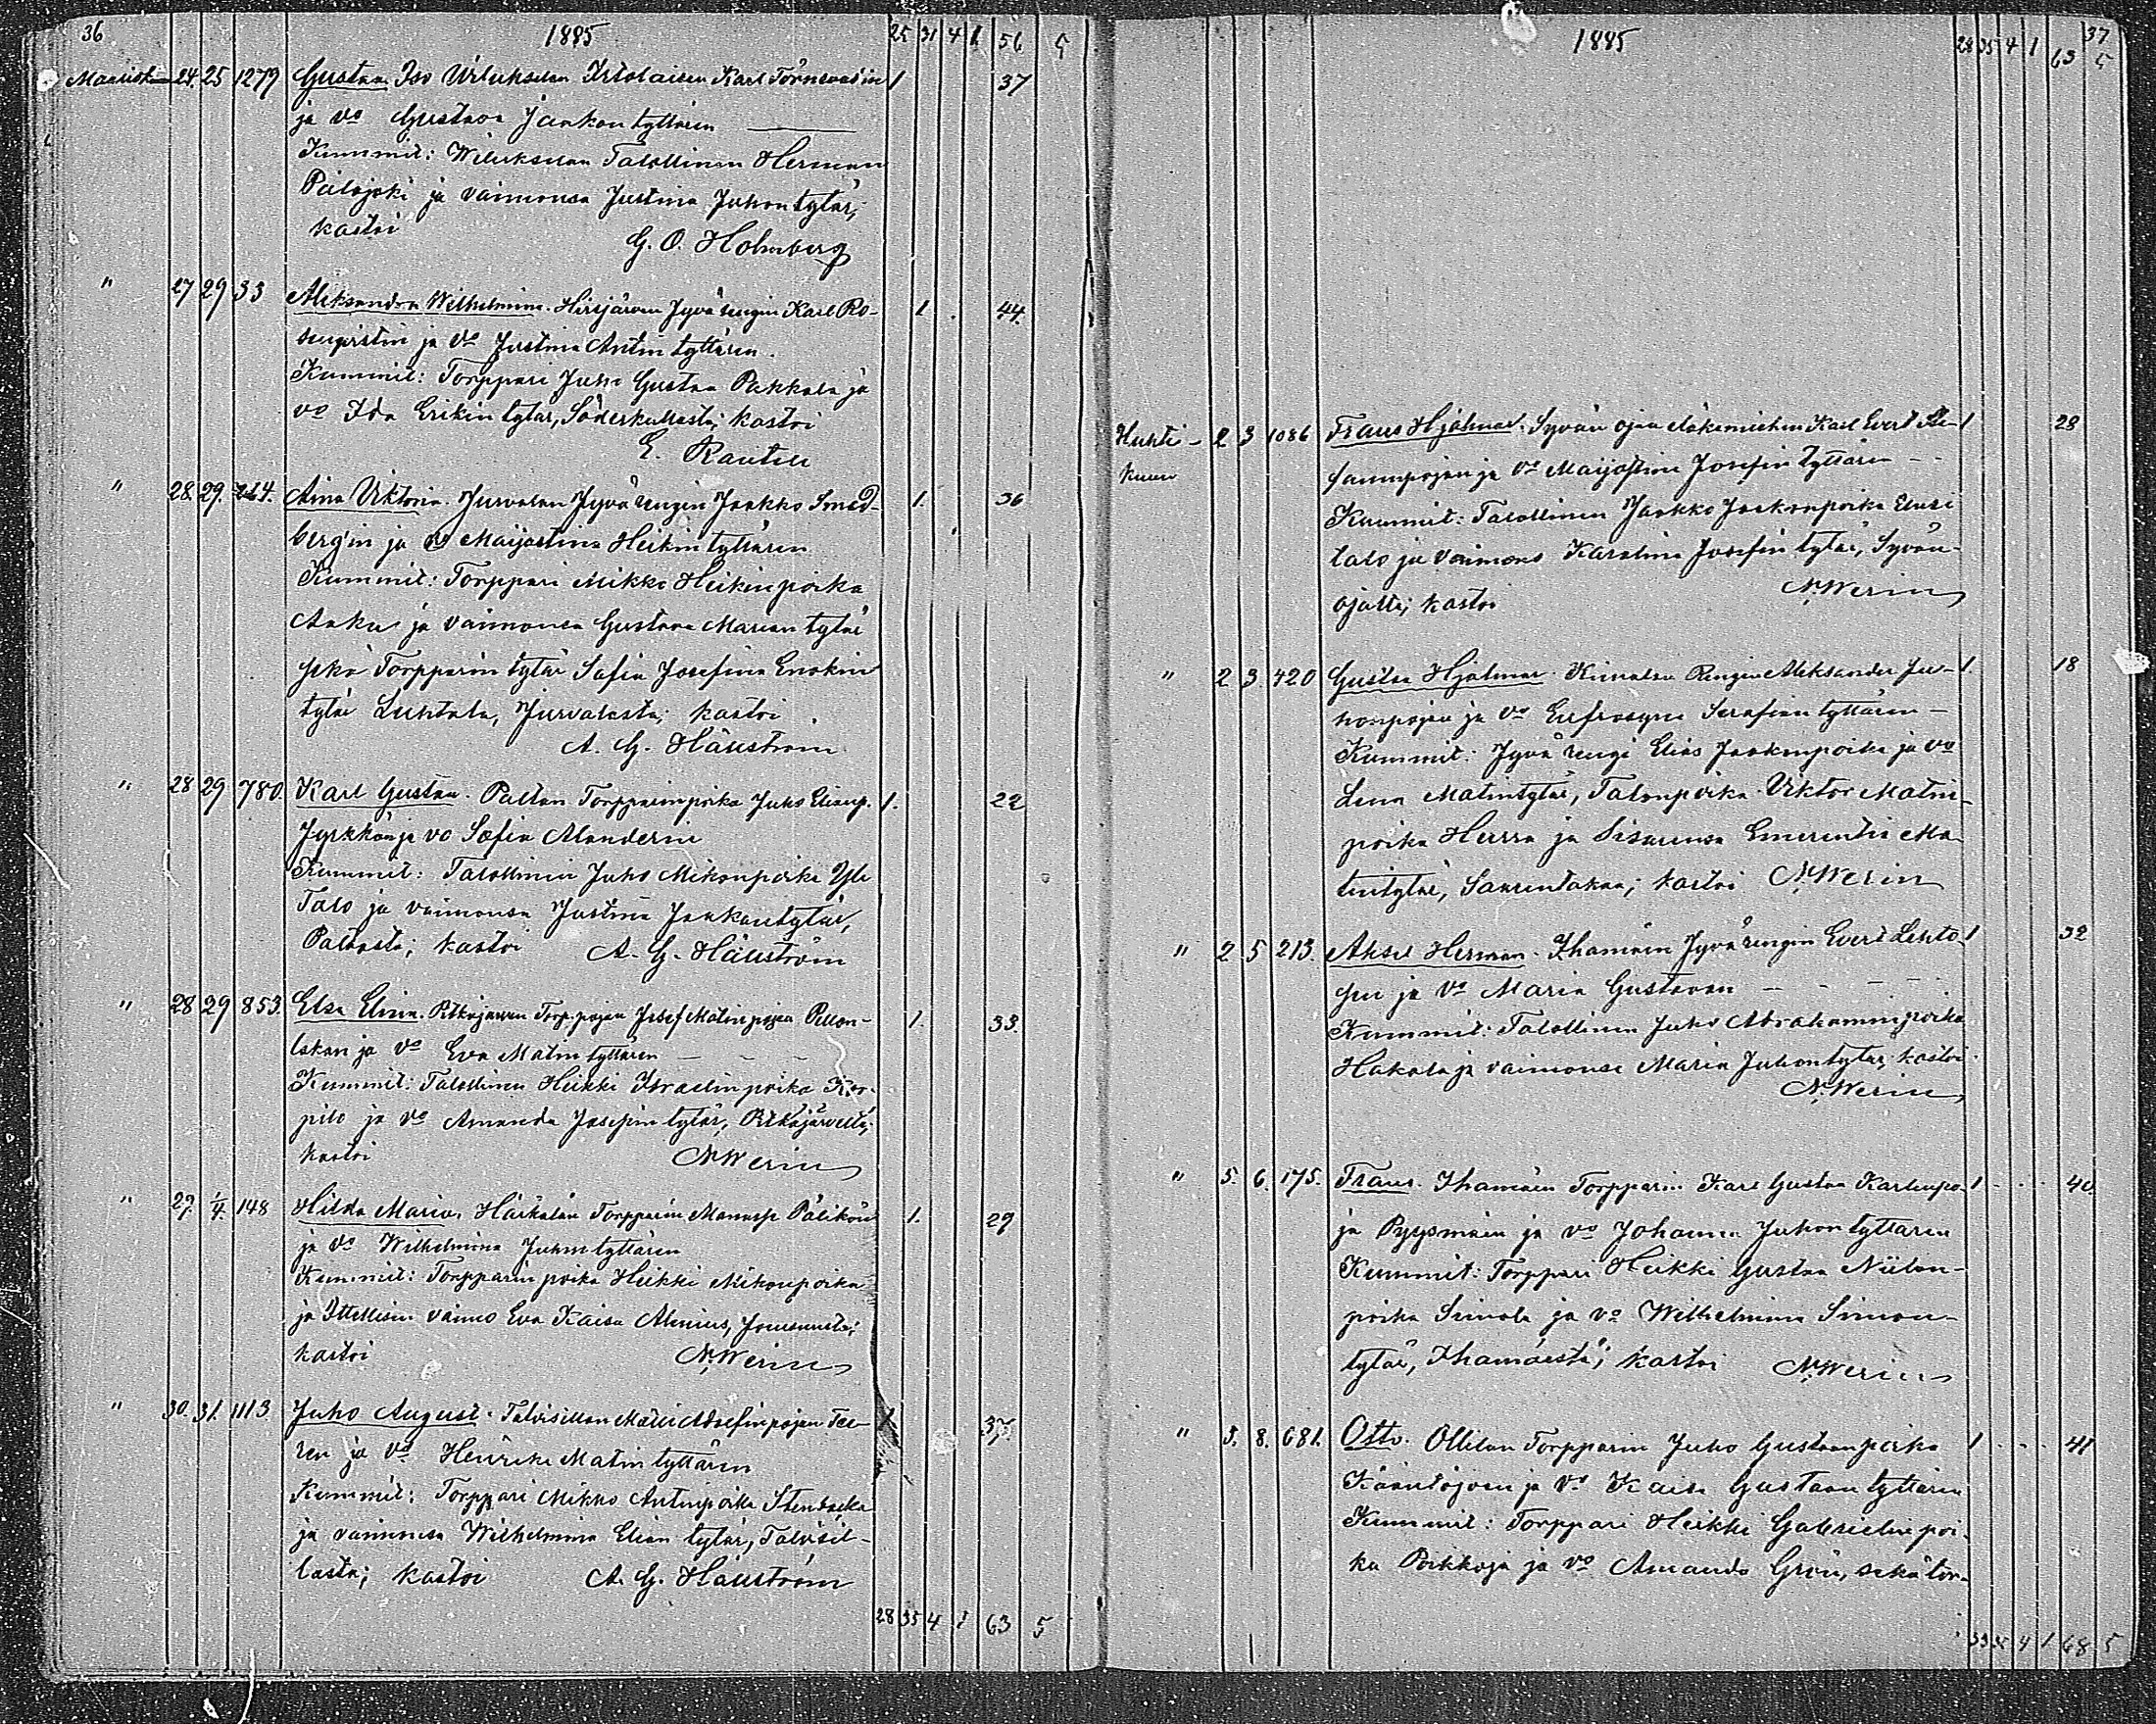 36 1885 25 31 4 1 56 5
Maalisk 24. 25 1279 Gustaa Iso Wiluksilan Itslaisen Karl Törnroos'in 1 37
ja vo Gustava Jaakon tyttären
Kummit: Wiluksilan Talollinen Herman
Palojoki ja vaimonsa Justina Juhon tytär;
kastoi
G. O. Holmberg
" 27 29 33 Aleksandra Wilhelmina. Hirsjärven Jyvä rengin Karl Ro- 1 44
senqvistin ja vo Justina Antin tyttären.
Kummit: Torppari Juho Gustaa Pakkala ja
vo Ida Erikin tytar, Söderkullasta; kastoi
E. Rautell
" 28. 29. 264. Aina Viktoria. Jurvalan Jyvä rengin Jaakko Smed- 1. 36
berg'in ja vo Maijastina Heikin tyttären
Kummit: Torppari Mikko Heikinpoika
Anku ja vaimonsa Gustava Marian tytär
sekä Torpparin tytär Sofia Josefina Enokin
tytär Luhtala, Jurvalasta; kastoi
A. G. Häuström
" 28 29 780. Karl Gustaa. Paltan Torpparinpoika Juho Eliaup. 1. 22
Jyrkkön ja vo Sofia Manderin
Kummit: Talollinen Juho Mikonpoika Yli
Talo ja vaimonsa Justina Jaakontytär,
Paltasta; kastoi A. G. Häuström
" 28 29 853. Elsa Elina. Pitkäjärven Torp.pojan Josef Matinpojan Pellon- 1. 33.
lakan ja vo Eva Matin tyttären
Kummit: Talollinen Heikki Israelinpoika Kor-
pilo ja vo Amanda Josefin tytär, Pitkäjärveltä;
kastoi N. Werin
" 29. 1/4. 148 Hilda Maria. Härkälän Torpparin Manasse Pälikön 1. 29
ja vo Wilhelmina Juhon tyttären
Kummit: Torpparin poika Heikki Mikonpoika
ja Itsellisen vaimo Eva Kaisa Alenius,
kastoi N. Werin
" 30. 31. 1113. Juho August. Talvisillan Matti Adolfinpojan Tee- 1 37.
ren ja vo Henrika Matin tyttären
Kummit: Torppari Mikko Antinpoika Stenbacka
ja vaimonsa Wilhelmina Elian tytär, Talvisil-
lasta; kastoi A. G. Häuström
28 35 4 1 63 5
1885 28 35 4 1 63 37 5
Huhti- 2 3 1086 Frans Hjalmar. Syvän ojan Mäkimiehen Karl Evert 1 28
kuun sanpojan ja vo Maijastina Josefin tyttären
Kummit: Talollinen Jaakko Jaakonpoika Uusi
talo ja vaimons Karolina Josefin tytär, Syvän-
ojalta; kastoi N. Werin
" 2 3. 420 Gustaa Hjalmar. Kimalan Rengin Aleksander Ju- 1. 18
honpojan ja vo Eufrosyne Serafian tyttären
Kummit: Jyvä rengi Elias Jaakonpoika ja vo
Leena Matintytär, Talonpoika Viktor Matin-
poika Herra ja Sisarensa Emerentia Ma-
tintytär, Saarentakaa; kastoi N. Werin
" 2 5 213. Aksel Herman. Ihamäen Jyvä rengin Evert Lehto- 1 32
sen ja vo Maria Gustavan
Kummit: Talollinen Juho Abrahaminpoika
Hakala ja vaimonsa Maria Juhontytär; kastoi
N. Werin
" 5. 6. 175. Frans. Ihamäen Torpparin Karl Gustaa Karlinpo- 1 40.
ja Pyysmäen ja vo Johanna Juhon tyttären
Kummit: Torppari Heikki Gustaa Niilon-
poika Simola ja vo Wilhelmina Simon-
tytär, Ihamäestä; kastoi N. Werin
" 5. 8. 681. Otto. Ollilan Torpparin Juho Gustaanpoika 1 41
Kääntöjoen ja vo Kaisa Gustaan tyttären
Kummit: Torppari Heikki Gabrielin poi-
ka Poikkoja ja vo Amanda Grön, sekä tor-
33 35 4 1 68 5